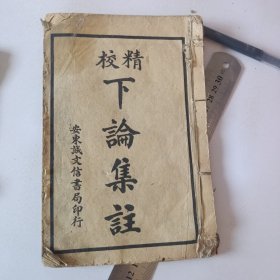 精校
下論集註
安東誠文信書局印行